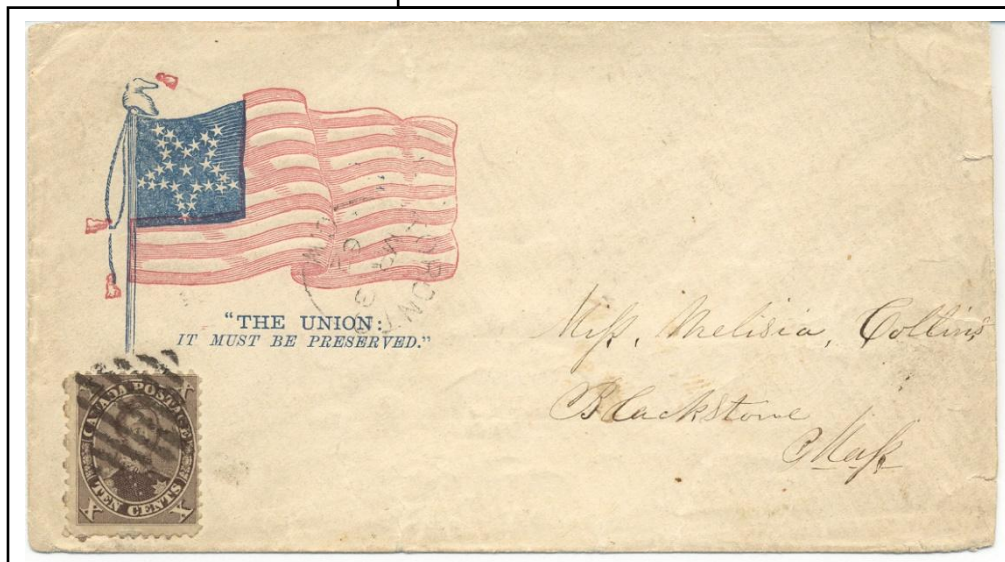 "THE UNION:
IT MUST BE PRESERVED."
CANADA POSTAGE
TEN CENTS
X
X
X
X
Miss, Melisia, Collins
Blackstone
Mass